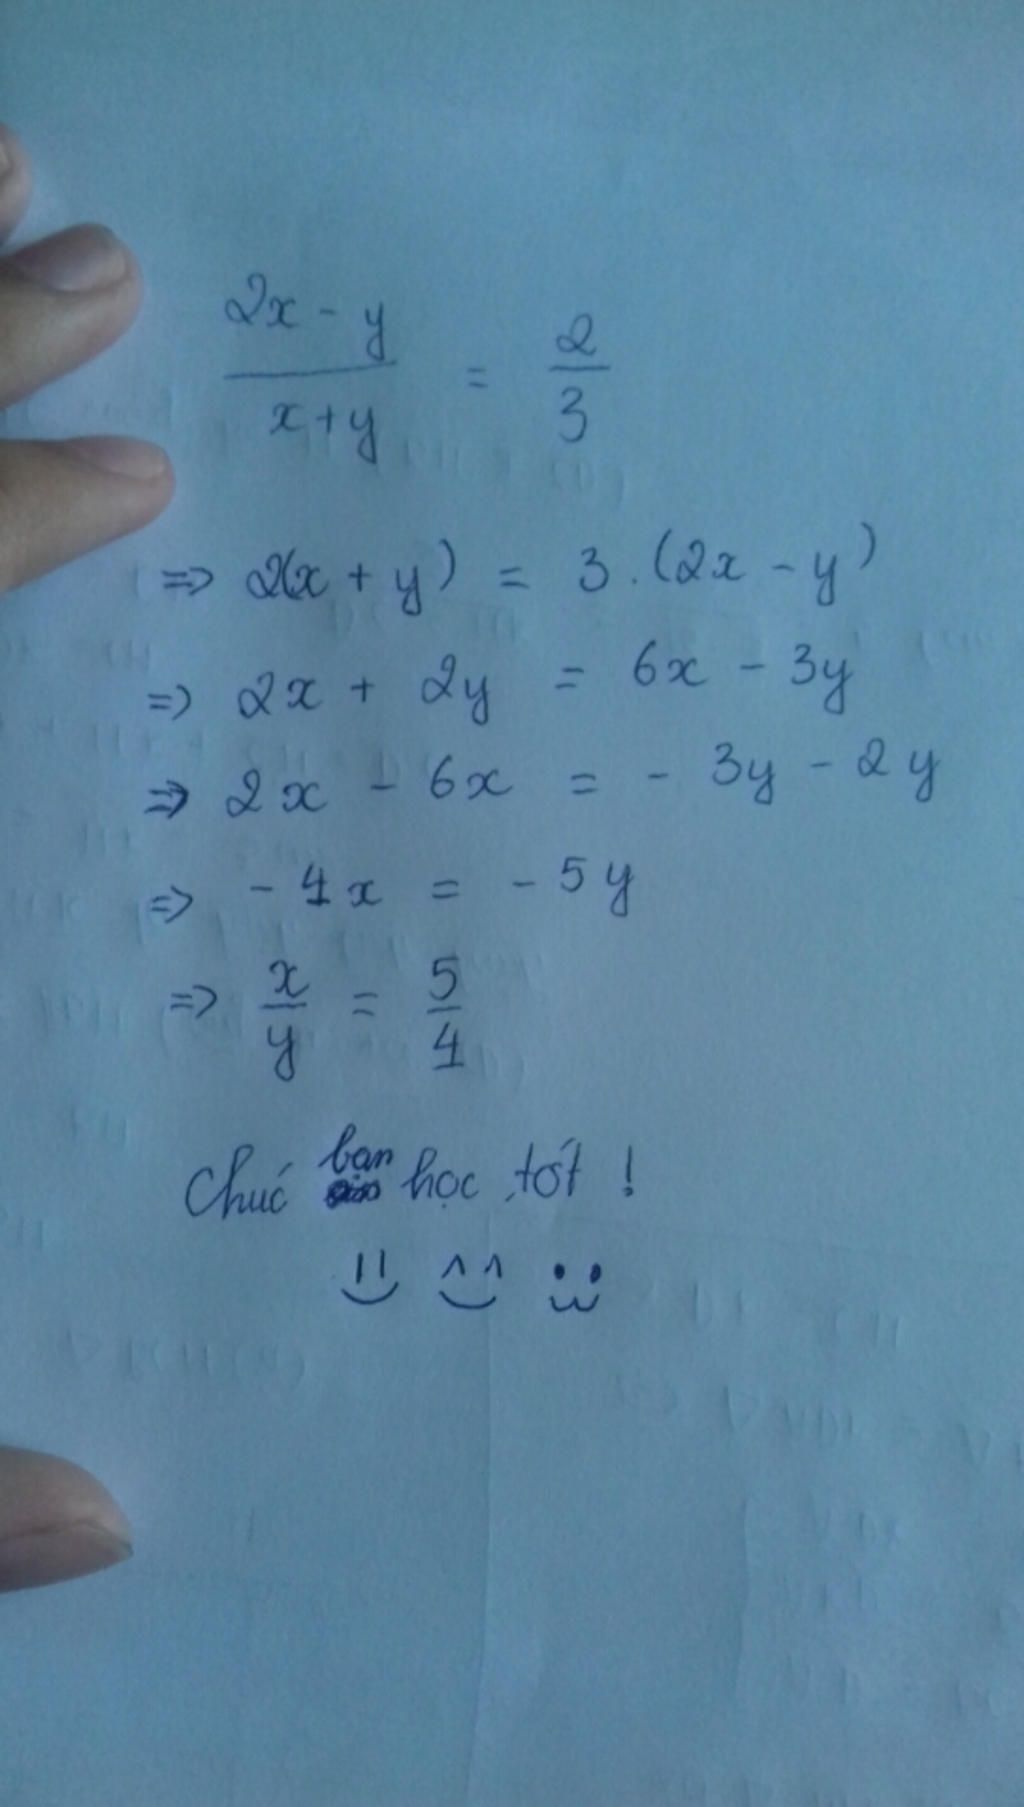 2x - y / x+y = 2/3
=> 2(x + y) = 3.(2x - y)
=> 2x + 2y = 6x - 3y
=> 2x - 6x = - 3y - 2y
=> - 4x = - 5y
=> x/y = 5/4
Chúc bạn học tốt !